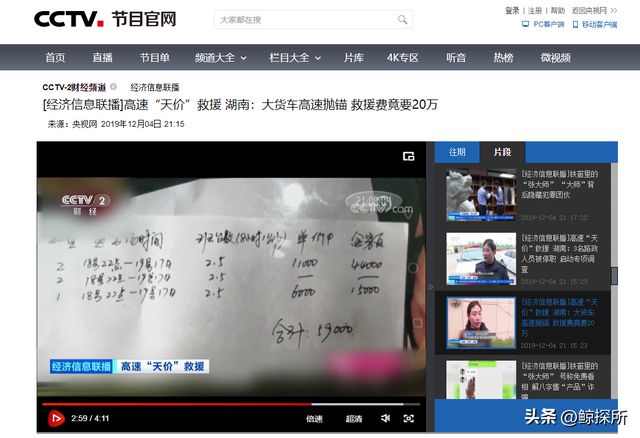 CCTV. 节目官网
大家都在搜
登录 | 注册 | 帮助 返回央视网 >>
PC客户端 移动客户端
首页 直播 节目单 频道大全 栏目大全 片库 4K专区 听音 热榜 微视频
CCTV-2财经频道 经济信息联播
[经济信息联播]高速“天价”救援 湖南：大货车高速抛锚 救援费竟要20万
来源：央视网 2019年12月04日 21:15
CCTV 2
财经
CCTV.com
时间 单价 金额
2 18号22点－19号17日 2.5 11000 44000
2 18号22点－19号17日 2.5 —
1 18号22点－19号17日 2.5 6000 15000
合计：59000
经济信息联播 高速“天价”救援
2:59 / 4:11 倍速 超清
往期 片段
[经济信息联播]铁窗里的
“张大师” “大师”背
后隐藏犯罪团伙
2019-12-04 21:17:22
[经济信息联播]高速“天
价”救援 湖南：3名路政
人员被停职 启动专项调
查
[经济信息联播]高速“天
价”救援 湖南：大货车
高速抛锚 救援费竟要20
万
2019-12-04 21:15:21
[经济信息联播]铁窗里的
“张大师” 号称免费看
相 解八字售“产品”诈
骗
头条 @鲸探所